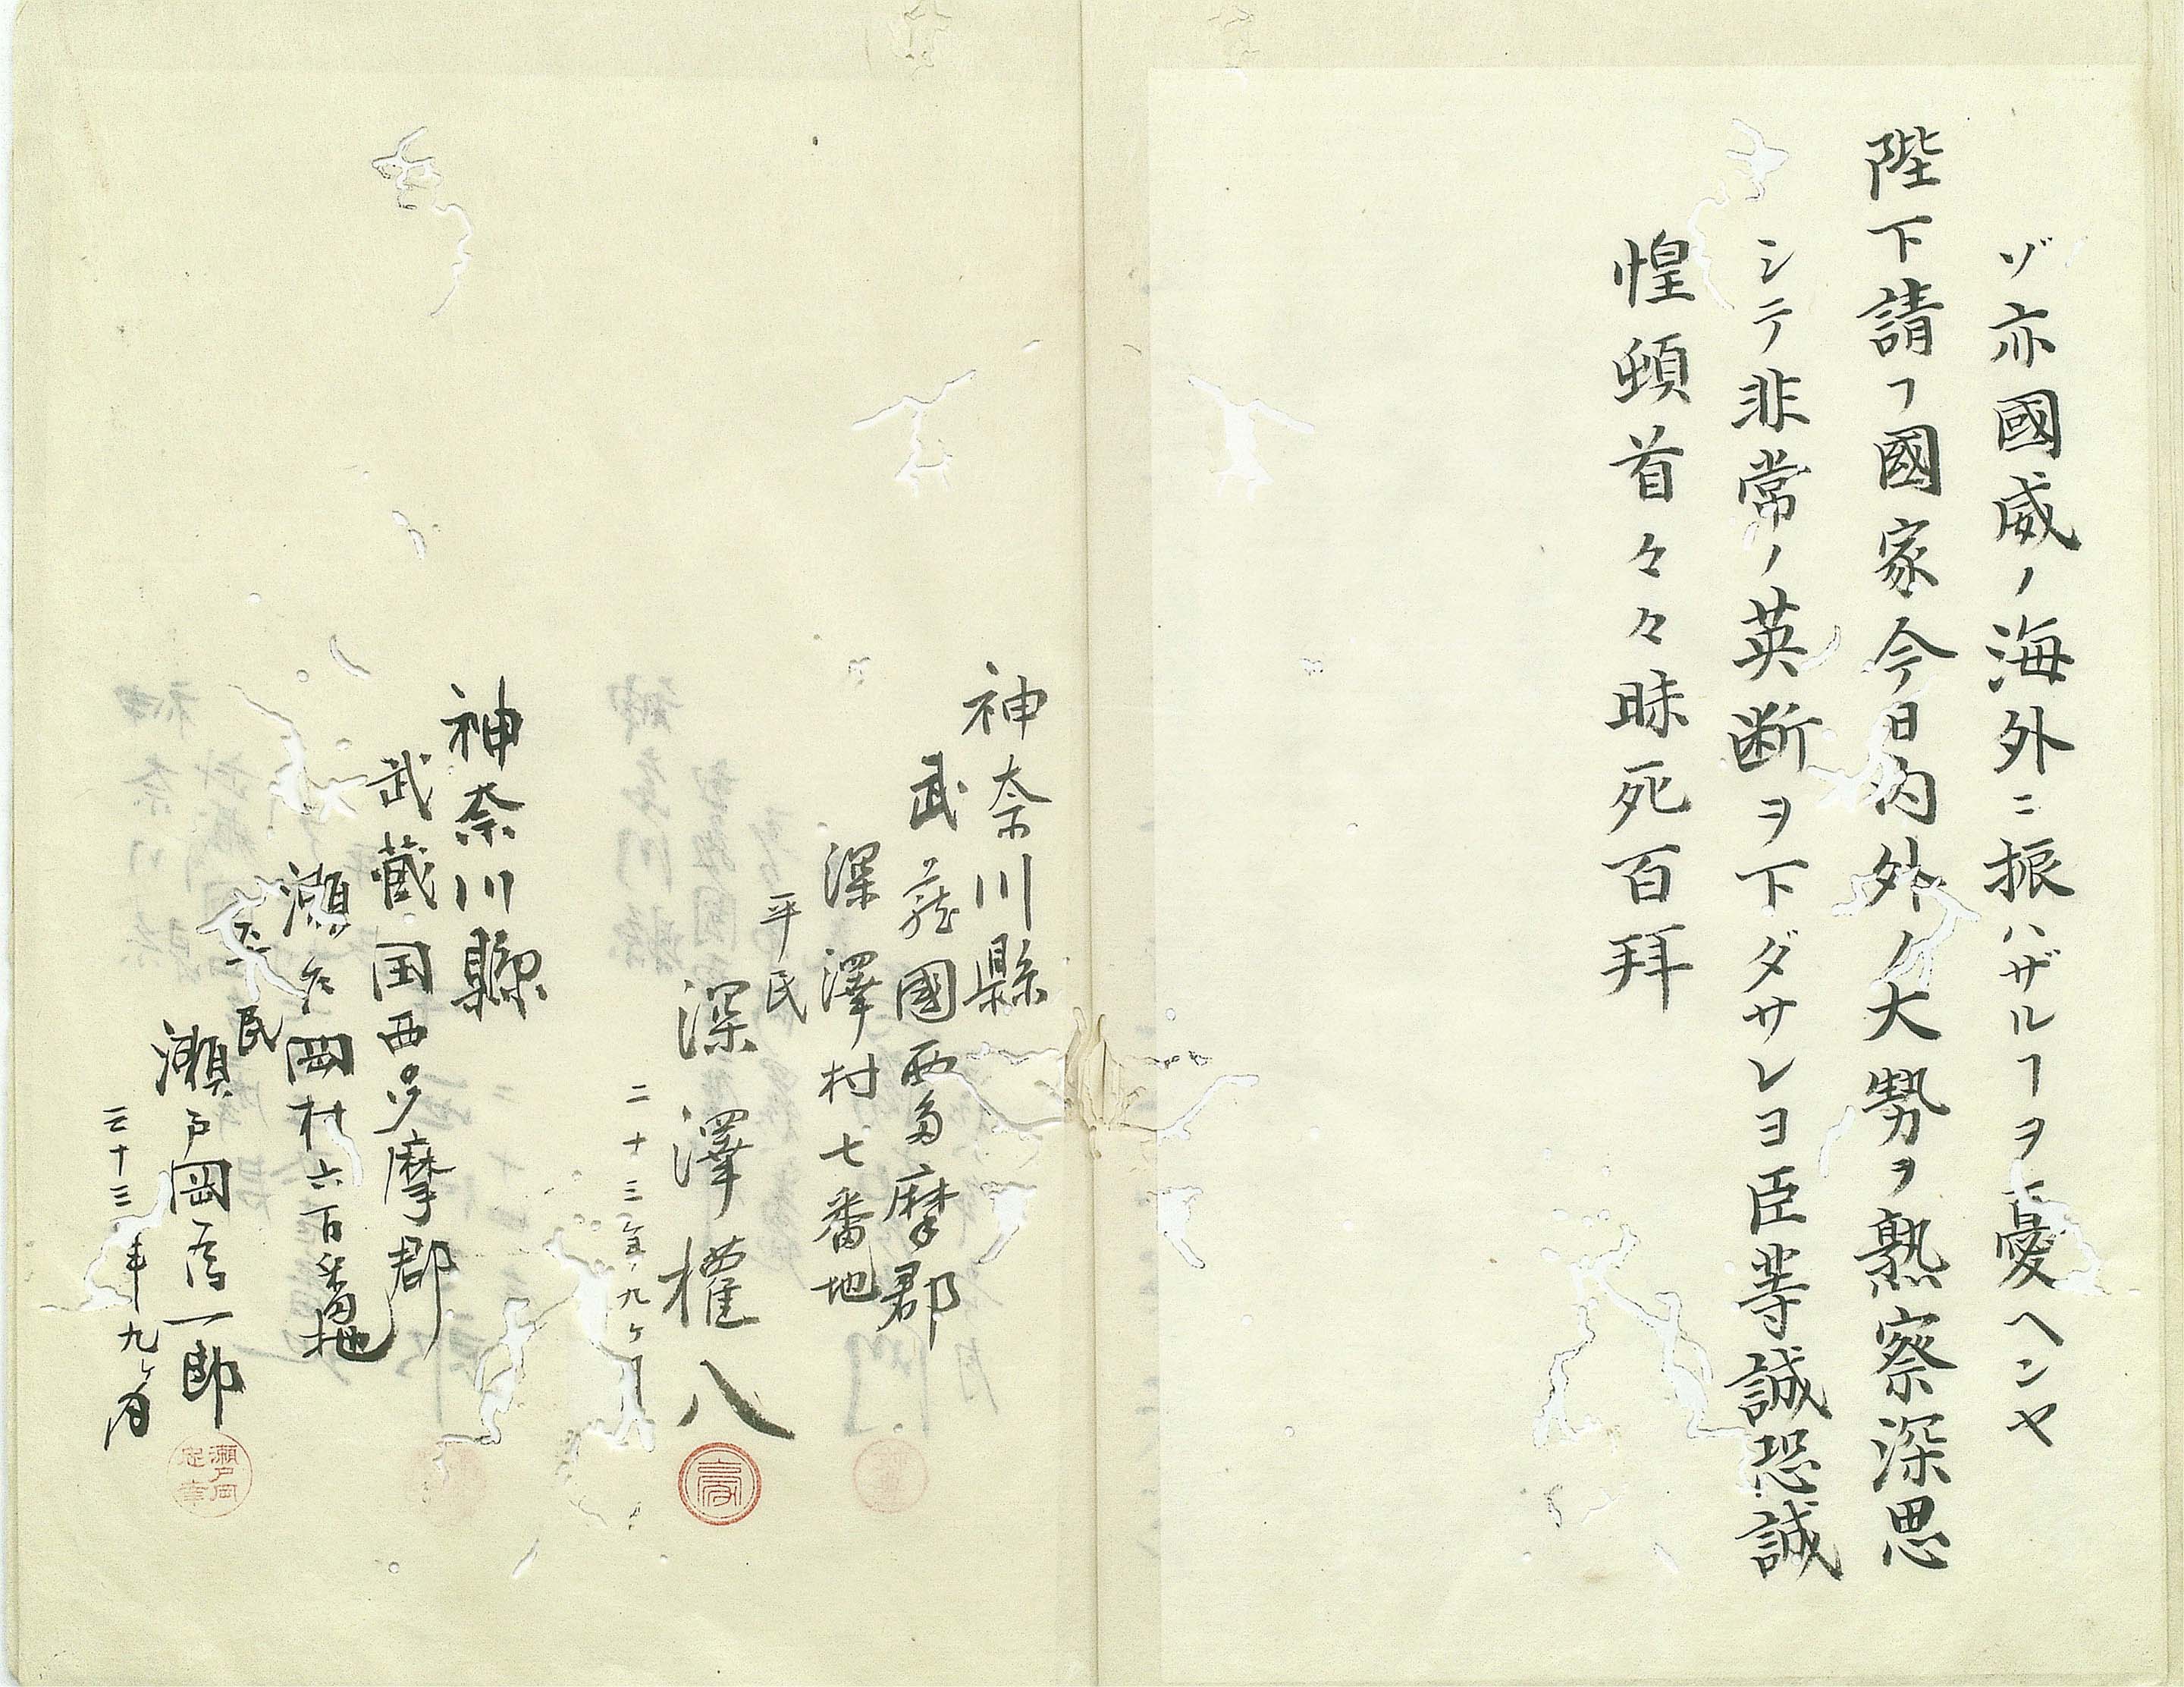 ゾ亦國威ノ海外ニ振ハザルヿヲ憂ヘンヤ
陛下請フ國家今日内外ノ大勢ヲ熟察深思
シテ非常ノ英断ヲ下ダサレヨ臣等誠恐誠
惶頓首々々昧死百拜
神奈川縣
武藏國西多摩郡
深澤村七番地
平民
深澤權八
二十三年九ヶ月
神奈川縣
武蔵国西多摩郡
瀬戸岡村六百番地
平民
瀬戸岡為一郎
三十三年九ヶ月